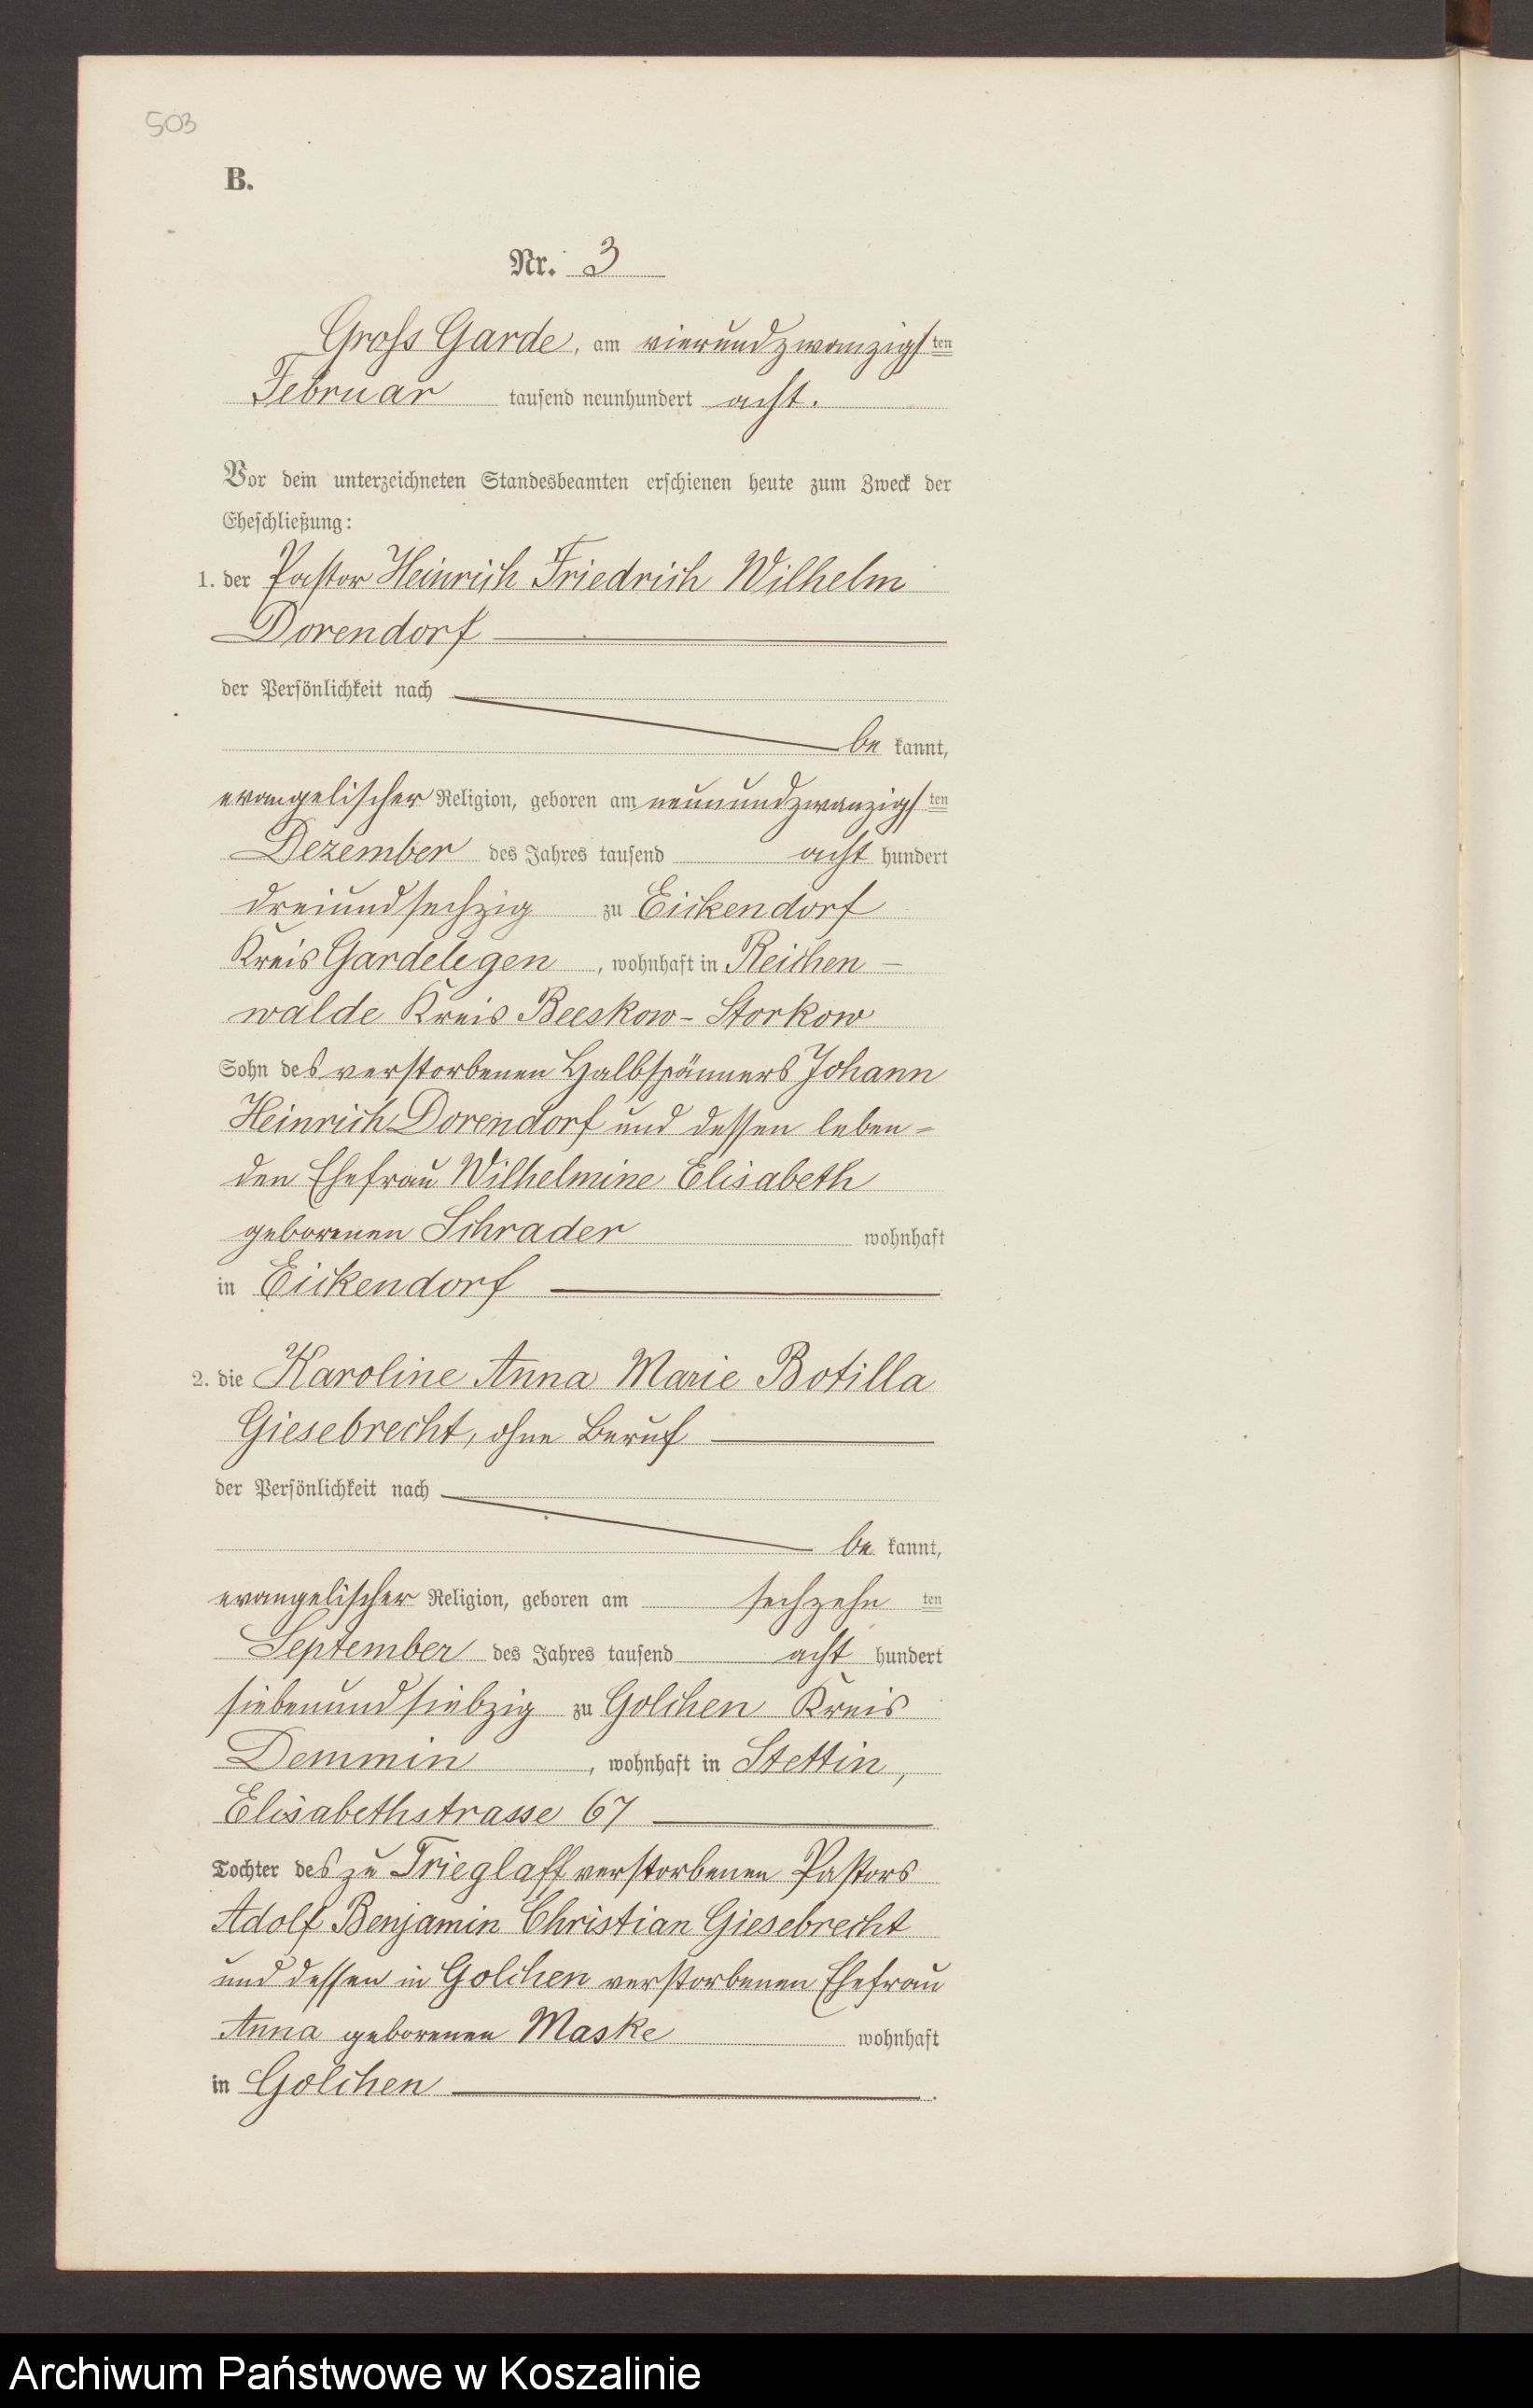 503
B.
Nr. 3
Gross Garde, am vierundzwanzigsten
Februar tausend neunhundert acht.
Vor dem unterzeichneten Standesbeamten erschienen heute zum Zweck der
Eheschließung:
1. der Pastor Heinrich Friedrich Wilhelm
Dorendorf
der Persönlichkeit nach
be kannt,
evangelischer Religion, geboren am neunundzwanzigsten
Dezember des Jahres tausend acht hundert
dreiundsechzig zu Eickendorf
Kreis Gardelegen, wohnhaft in Reichen-
walde Kreis Beeskow-Storkow
Sohn des verstorbenen Halbspänners Johann
Heinrich Dorendorf und dessen leben-
den Ehefrau Wilhelmine Elisabeth
geborenen Schrader wohnhaft
in Eickendorf
2. die Karoline Anna Marie Botilla
Giesebrecht, ohne Beruf
der Persönlichkeit nach
be kannt,
evangelischer Religion, geboren am sechzehn ten
September des Jahres tausend acht hundert
siebenundsiebzig zu Golchen Kreis
Demmin, wohnhaft in Stettin,
Elisabethstrasse 67
Tochter des zu Trieglaff verstorbenen Pastors
Adolf Benjamin Christian Giesebrecht
und dessen in Golchen verstorbenen Ehefrau
Anna geborenen Maske wohnhaft
in Golchen.
Archiwum Państwowe w Koszalinie